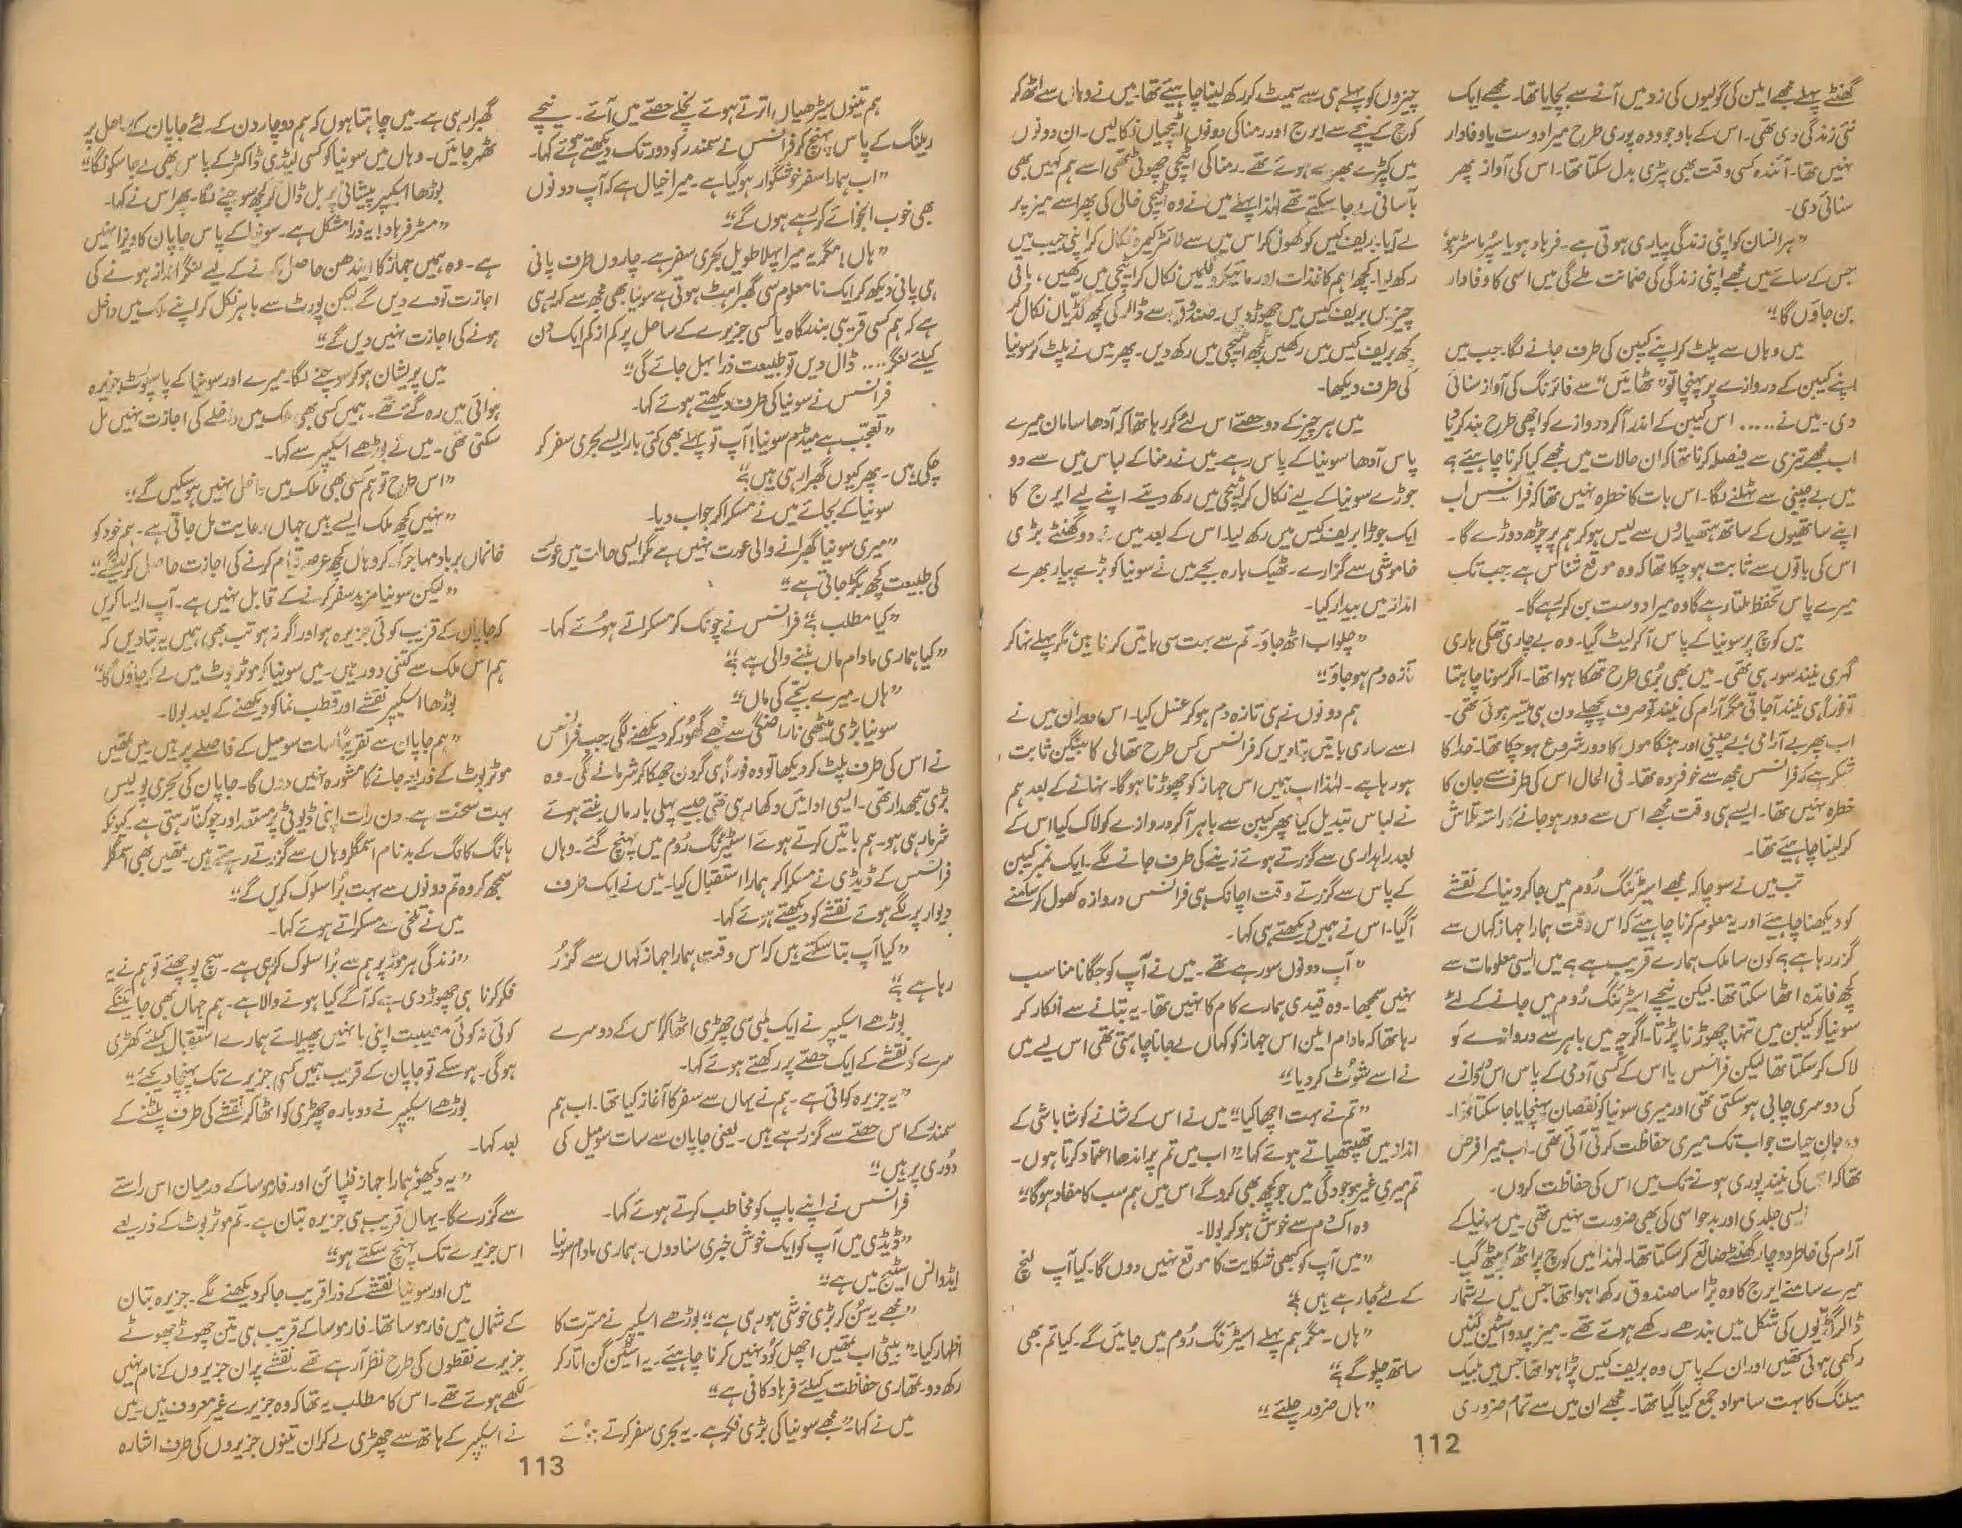 گھنٹے پہلے مجھے ایلن کی گولیوں کی زد میں آنے سے بچایا تھا۔ مجھے ایک
نئی زندگی دی تھی۔ اس کے باوجود وہ پوری طرح میرا دوست یا وفادار
نہیں تھا۔ آئندہ کسی وقت بھی پٹری بدل سکتا تھا۔ اس کی آواز پھر
سنائی دی۔
”ہر انسان کو اپنی زندگی پیاری ہوتی ہے۔ فرہاد ہو یا سپر ماسٹر ہو،
جس کے سائے میں مجھے اپنی زندگی کی ضمانت ملے گی میں اسی کا وفادار
بن جاؤں گا“
میں وہاں سے پلٹ کر اپنے کیبن کی طرف جانے لگا۔ جب میں
اپنے کیبن کے دروازے پر پہنچا تو ”ٹھائیں“ سے فائرنگ کی آواز سنائی
دی۔ میں نے ..... اس کیبن کے اندر آ کر دروازے کو اچھی طرح بند کر دیا
اب مجھے تیزی سے فیصلہ کرنا تھا کہ ان حالات میں مجھے کیا کرنا چاہیئے؟
میں بے چینی سے ٹہلنے لگا۔ اس بات کا خطرہ نہیں تھا کہ فرانسس اب
اپنے ساتھیوں کے ساتھ ہتھیاروں سے لیس ہو کر ہم پر چڑھ دوڑے گا۔
اس کی باتوں سے ثابت ہو چکا تھا کہ وہ موقع شناس ہے جب تک
میرے پاس تحفظ ملتا رہے گا وہ میرا دوست بن کر رہے گا۔
میں کوچ پر سونیا کے پاس آ کر لیٹ گیا۔ وہ بے چاری تھکی ہاری
گہری نیند سو رہی تھی۔ میں بھی بُری طرح تھکا ہوا تھا۔ اگر سونا چاہتا
تو فوراً ہی نیند آ جاتی مگر آرام کی نیند تو صرف پچھلے دن ہی میسر ہوئی تھی۔
اب پھر بے آرامی، بے چینی اور ہنگاموں کا دور شروع ہو چکا تھا۔ خدا کا
شکر ہے کہ فرانسس مجھ سے خوفزدہ تھا۔ فی الحال اس کی طرف سے جان کا
خطرہ نہیں تھا۔ ایسے ہی وقت مجھے اس سے دور ہو جانے کا راستہ تلاش
کر لینا چاہیئے تھا۔
تب میں نے سوچا کہ مجھے اسٹیرنگ رُوم میں جا کر دنیا کے نقشے
کو دیکھنا چاہیے اور یہ معلوم کرنا چاہیئے کہ اس وقت ہمارا جہاز کہاں سے
گزر رہا ہے؟ کون سا ملک ہمارے قریب ہے؟ میں ایسی معلومات سے
کچھ فائدہ اٹھا سکتا تھا۔ لیکن نیچے اسٹیرنگ رُوم میں جانے کے لئے
سونیا کو کیبن میں تنہا چھوڑنا پڑتا۔ اگرچہ میں باہر سے دروازے کو
لاک کر سکتا تھا لیکن فرانسس یا اس کے کسی آدمی کے پاس اس دروازے
کی دوسری چابی ہو سکتی تھی اور میری سونیا کو نقصان پہنچایا جا سکتا تھا۔
وہ جانِ حیات جو اب تک میری حفاظت کرتی آئی تھی۔ اب میرا فرض
تھا کہ اس کی نیند پوری ہونے تک میں اس کی حفاظت کروں۔
ایسی جلدی اور بدحواسی کی بھی ضرورت نہیں تھی۔ میں سونیا کے
آرام کی خاطر دو چار گھنٹے ضائع کر سکتا تھا۔ لہٰذا میں کوچ پر اٹھ کر بیٹھ گیا۔
میرے سامنے ایرج کا وہ بڑا سا صندوق رکھا ہوا تھا جس میں بے شمار
ڈالر گڈیوں کی شکل میں بندھے رکھے ہوئے تھے۔ میز پر دو اسٹین گنیں
رکھی ہوئی تھیں اور ان کے پاس وہ بریف کیس پڑا ہوا تھا جس میں بلیک
میلنگ کا بہت سا مواد جمع کیا گیا تھا۔ مجھے ان میں سے تمام ضروری
چیزوں کو پہلے ہی سے سمیٹ کر رکھ لینا چاہیئے تھا۔ میں نے وہاں سے اٹھ کر
کوچ کے نیچے سے ایرج اور رمنا کی دونوں اٹیچیاں نکالیں۔ ان دونوں
میں کپڑے بھرے ہوئے تھے۔ رمنا کی اٹیچی چھوٹی تھی اسے ہم کہیں بھی
بآسانی لے جا سکتے تھے لہٰذا پہلے میں نے وہ اٹیچی خالی کی پھر اسے میز پر
لے آیا۔ بریف کیس کو کھول کر اس میں سے لائٹر کیمرہ نکال کر اپنی جیب میں
رکھ لیا۔ کچھ اہم کاغذات اور مائیکرو فلمیں نکال کر اٹیچی میں رکھیں، باقی
چیزیں بریف کیس میں چھوڑ دیں۔ صندوق سے ڈالر کی کچھ گڈیاں نکال کر
کچھ بریف کیس میں رکھیں کچھ اٹیچی میں رکھ دیں۔ پھر میں نے پلٹ کر سونیا
کی طرف دیکھا۔
میں ہر چیز کے دو حصے اس لئے کر رہا تھا کہ آدھا سامان میرے
پاس آدھا سونیا کے پاس رہے۔ میں نے رمنا کے لباس میں سے دو
جوڑے سونیا کے لیے نکال کر اٹیچی میں رکھ دیئے۔ اپنے لیے ایرج کا
ایک جوڑا بریف کیس میں رکھ لیا۔ اس کے بعد میں نے دو گھنٹے بڑی
خاموشی سے گزارے۔ ٹھیک بارہ بجے میں نے سونیا کو بڑے پیار بھرے
انداز میں بیدار کیا۔
”چلو اب اٹھ جاؤ۔ تم سے بہت سی باتیں کرنا ہیں مگر پہلے نہا کر
تازہ دم ہو جاؤ“
ہم دونوں نے ہی تازہ دم ہو کر غسل کیا۔ اس دوران میں نے
اسے ساری باتیں بتا دیں کہ فرانسس کس طرح تھالی کا بینگن ثابت
ہو رہا ہے۔ لہٰذا اب ہمیں اس جہاز کو چھوڑنا ہوگا۔ نہانے کے بعد ہم
نے لباس تبدیل کیا پھر کیبن سے باہر آ کر دروازے کو لاک کیا اس کے
بعد راہداری سے گزرتے ہوئے زینے کی طرف جانے لگے۔ ایک نمبر کیبن
کے پاس سے گزرتے وقت اچانک ہی فرانسس دروازہ کھول کر سامنے
آ گیا۔ اس نے ہمیں دیکھتے ہی کہا۔
”آپ دونوں سو رہے تھے۔ میں نے آپ کو جگانا مناسب
نہیں سمجھا۔ وہ قیدی ہمارے کام کا نہیں تھا۔ یہ بتانے سے انکار کر
رہا تھا کہ مادام ایلن اس جہاز کو کہاں لے جانا چاہتی تھی اس لیے میں
نے اسے شوٹ کر دیا“
”تم نے بہت اچھا کیا“ میں نے اس کے شانے کو شاباشی کے
انداز میں تھپتھپاتے ہوئے کہا۔ ”اب میں تم پر اندھا اعتماد کرتا ہوں۔
تم میری غیر موجودگی میں جو کچھ بھی کرو گے اس میں ہم سب کا مفاد ہوگا“
وہ اک دم سے خوش ہو کر بولا۔
”میں آپ کو کبھی شکایت کا موقع نہیں دوں گا۔ کیا آپ لنچ
کے لئے جا رہے ہیں؟“
”ہاں۔ مگر ہم پہلے اسٹیرنگ رُوم میں جائیں گے۔ کیا تم بھی
ساتھ چلو گے؟“
”ہاں ضرور چلئے“
112
ہم تینوں سیڑھیاں اترتے ہوئے نچلے حصے میں آئے۔ نیچے
ریلنگ کے پاس پہنچ کر فرانسس نے سمندر کو دور تک دیکھتے ہوئے کہا۔
”اب ہمارا سفر خوشگوار ہو گیا ہے۔ میرا خیال ہے کہ آپ دونوں
بھی خوب انجوائے کر رہے ہوں گے“
”ہاں! مگر یہ میرا پہلا طویل بحری سفر ہے۔ چاروں طرف پانی
ہی پانی دیکھ کر ایک نامعلوم سی گھبراہٹ ہوتی ہے سونیا بھی مجھ سے کہہ رہی
ہے کہ ہم کسی قریبی بندرگاہ یا کسی جزیرے کے ساحل پر کم از کم ایک دن
کیلئے لنگر .... ڈال دیں تو طبیعت ذرا بہل جائے گی“
فرانسس نے سونیا کی طرف دیکھتے ہوئے کہا۔
”تعجب ہے میڈم سونیا! آپ تو پہلے بھی کئی بار ایسے بحری سفر کر
چکی ہیں۔ پھر کیوں گھبرا رہی ہیں؟“
سونیا کے بجائے میں نے مسکرا کر جواب دیا۔
”میری سونیا گھبرانے والی عورت نہیں ہے مگر ایسی حالت میں عورت
کی طبیعت کچھ بگڑ جاتی ہے“
”کیا مطلب؟“ فرانسس نے چونک کر مسکراتے ہوئے کہا۔
”کیا ہماری مادام ماں بننے والی ہے؟“
”ہاں۔ میرے بچے کی ماں“
سونیا بڑی میٹھی ناراضگی سے مجھے گھور کر دیکھنے لگی جب فرانسس
نے اس کی طرف پلٹ کر دیکھا تو وہ فوراً ہی گردن جھکا کر شرمانے لگی۔ وہ
بڑی سمجھدار تھی۔ ایسی ادائیں دکھا رہی تھی جیسے پہلی بار ماں بنتے ہوئے
شرما رہی ہو۔ ہم باتیں کرتے ہوئے اسٹیرنگ رُوم میں پہنچ گئے۔ وہاں
فرانسس کے ڈیڈی نے مسکرا کر ہمارا استقبال کیا۔ میں نے ایک طرف
دیوار پر لگے ہوئے نقشے کو دیکھتے ہوئے کہا۔
”کیا آپ بتا سکتے ہیں کہ اس وقت ہمارا جہاز کہاں سے گزر
رہا ہے؟“
بوڑھے اسکیپر نے ایک لمبی سی چھڑی اٹھا کر اُس کے دوسرے
سرے کو نقشے کے ایک حصے پر رکھتے ہوئے کہا۔
”یہ جزیرہ ہوائی ہے۔ ہم نے یہاں سے سفر کا آغاز کیا تھا۔ اب ہم
سمندر کے اس حصے سے گزر رہے ہیں۔ یعنی جاپان سے سات سو میل کی
دُوری پر ہیں“
فرانسس نے اپنے باپ کو مخاطب کرتے ہوئے کہا۔
”ڈیڈی میں آپ کو ایک خوش خبری سنا دوں۔ ہماری مادام سونیا
ایڈوانس اسٹیج میں ہے“
”مجھے یہ سن کر بڑی خوشی ہو رہی ہے“ بوڑھے اسکیپر نے مسرت کا
اظہار کیا۔ ”بیٹی اب تمھیں اچھل کود نہیں کرنا چاہیئے۔ یہ اسٹین گن اتار کر
رکھ دو۔ تمھاری حفاظت کیلئے فرہاد کافی ہے“
میں نے کہا۔ ”مجھے سونیا کی بڑی فکر ہے۔ یہ بحری سفر کرتے
گھبرا رہی ہے۔ میں چاہتا ہوں کہ ہم دو چار دن کے لئے جاپان کے ساحل پر
ٹھہر جائیں۔ وہاں میں سونیا کو کسی لیڈی ڈاکٹر کے پاس بھی لے جا سکوں گا“
بوڑھا اسکیپر پیشانی پر بل ڈال کر کچھ سوچنے لگا۔ پھر اس نے کہا۔
”مسٹر فرہاد! یہ ذرا مشکل ہے۔ سونیا کے پاس جاپان کا ویزا نہیں
ہے۔ وہ ہمیں جہاز کا ایندھن حاصل کرنے کے لیے لنگر انداز ہونے کی
اجازت تو دے دیں گے لیکن پورٹ سے باہر نکل کر اپنے ملک میں داخل
ہونے کی اجازت نہیں دیں گے“
میں پریشان ہو کر سوچنے لگا۔ میرے اور سونیا کے پاسپورٹ جزیرہ
ہوائی میں رہ گئے تھے۔ ہمیں کسی بھی ملک میں داخلے کی اجازت نہیں مل
سکتی تھی۔ میں نے بوڑھے اسکیپر سے کہا۔
”اس طرح تو ہم کسی بھی ملک میں داخل نہیں ہو سکیں گے“
”نہیں کچھ ملک ایسے ہیں جہاں رعایت مل جاتی ہے۔ ہم خود کو
خانماں برباد مہاجر کہہ کر وہاں کچھ عرصہ قیام کرنے کی اجازت حاصل کر لیں گے“
”لیکن سونیا مزید سفر کرنے کے قابل نہیں ہے۔ آپ ایسا کریں
کہ جاپان کے قریب کوئی جزیرہ ہو اور اگر نہ ہو تب بھی ہمیں یہ بتا دیں کہ
ہم اس ملک سے کتنی دور ہیں۔ میں سونیا کو موٹر بوٹ میں لے کر جاؤں گا“
بوڑھا اسکیپر نقشے اور قطب نما کو دیکھنے کے بعد بولا۔
”ہم جاپان سے تقریباً سات سو میل کے فاصلے پر ہیں۔ میں تمھیں
موٹر بوٹ کے ذریعہ جانے کا مشورہ نہیں دوں گا۔ جاپان کی بحری پولیس
بہت سخت ہے۔ دن رات اپنی ڈیوٹی پر مستعد اور چوکنا رہتی ہے۔ کیونکہ
ہانگ کانگ کے بدنام اسمگلر وہاں سے گزرتے رہتے ہیں۔ تمھیں بھی اسمگلر
سمجھ کر وہ تم دونوں سے بہت بُرا سلوک کریں گے“
میں نے تلخی سے مسکراتے ہوئے کہا۔
”زندگی ہر موڑ پر ہم سے بُرا سلوک کر رہی ہے۔ سچ پوچھئے تو ہم نے یہ
فکر کرنا ہی چھوڑ دی ہے کہ آگے کیا ہونے والا ہے۔ ہم جہاں بھی جائینگے
کوئی نہ کوئی مصیبت اپنی بانہیں پھیلائے ہمارے استقبال کیلئے کھڑی
ہوگی۔ ہو سکے تو جاپان کے قریب ہمیں کسی جزیرے تک پہنچا دیجئے“
بوڑھے اسکیپر نے دوبارہ چھڑی کو اٹھا کر نقشے کی طرف پلٹنے کے
بعد کہا۔
”یہ دیکھو، ہمارا جہاز فلپائن اور فارموسا کے درمیان اس راستے
سے گزرے گا۔ یہاں قریب ہی جزیرہ بتان ہے۔ تم موٹر بوٹ کے ذریعے
اس جزیرے تک پہنچ سکتے ہو“
میں اور سونیا نقشے کے ذرا قریب جا کر دیکھنے لگے۔ جزیرہ بتان
کے شمال میں فارموسا تھا۔ فارموسا کے قریب ہی تین چھوٹے چھوٹے
جزیرے نقطوں کی طرح نظر آ رہے تھے۔ نقشے پر ان جزیروں کے نام نہیں
لکھے ہوئے تھے۔ اس کا مطلب یہ تھا کہ وہ جزیرے غیر معروف ہیں۔ میں
نے اسکیپر کے ہاتھ سے چھڑی لے کر ان تینوں جزیروں کی طرف اشارہ
113